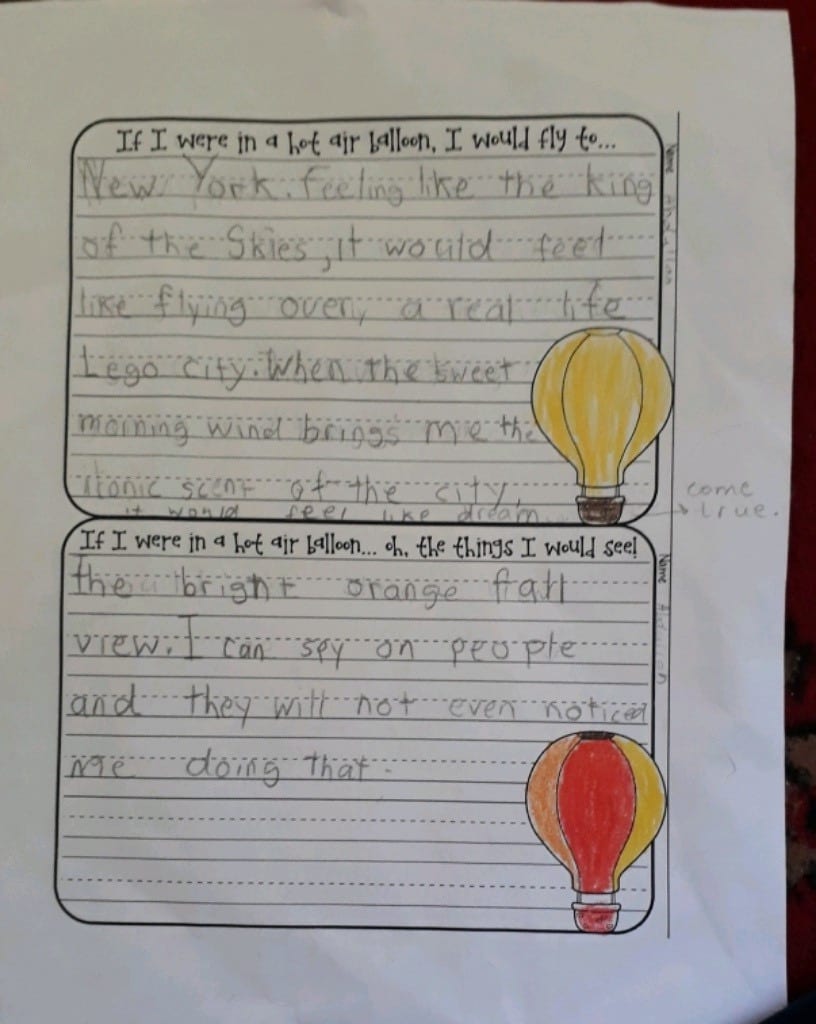 If I were in a hot air balloon, I would fly to...
New York. feeling like the king
of the Skies, it would feel
like flying over, a real life
Lego city. When the sweet
morning wind brings me the
itonic scent of the city,
it would feel like dream
come
true.
Name
If I were in a hot air balloon... oh, the things I would see!
the bright orange fall
view. I can spy on people
and they will not even noticed
me doing that.
Name